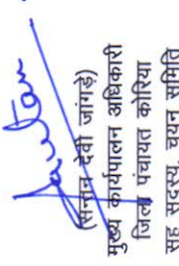 (सन्तन देवी जांगड़े)
मुख्य कार्यपालन अधिकारी
जिला पंचायत कोरिया
सह सदस्य, चयन समिति